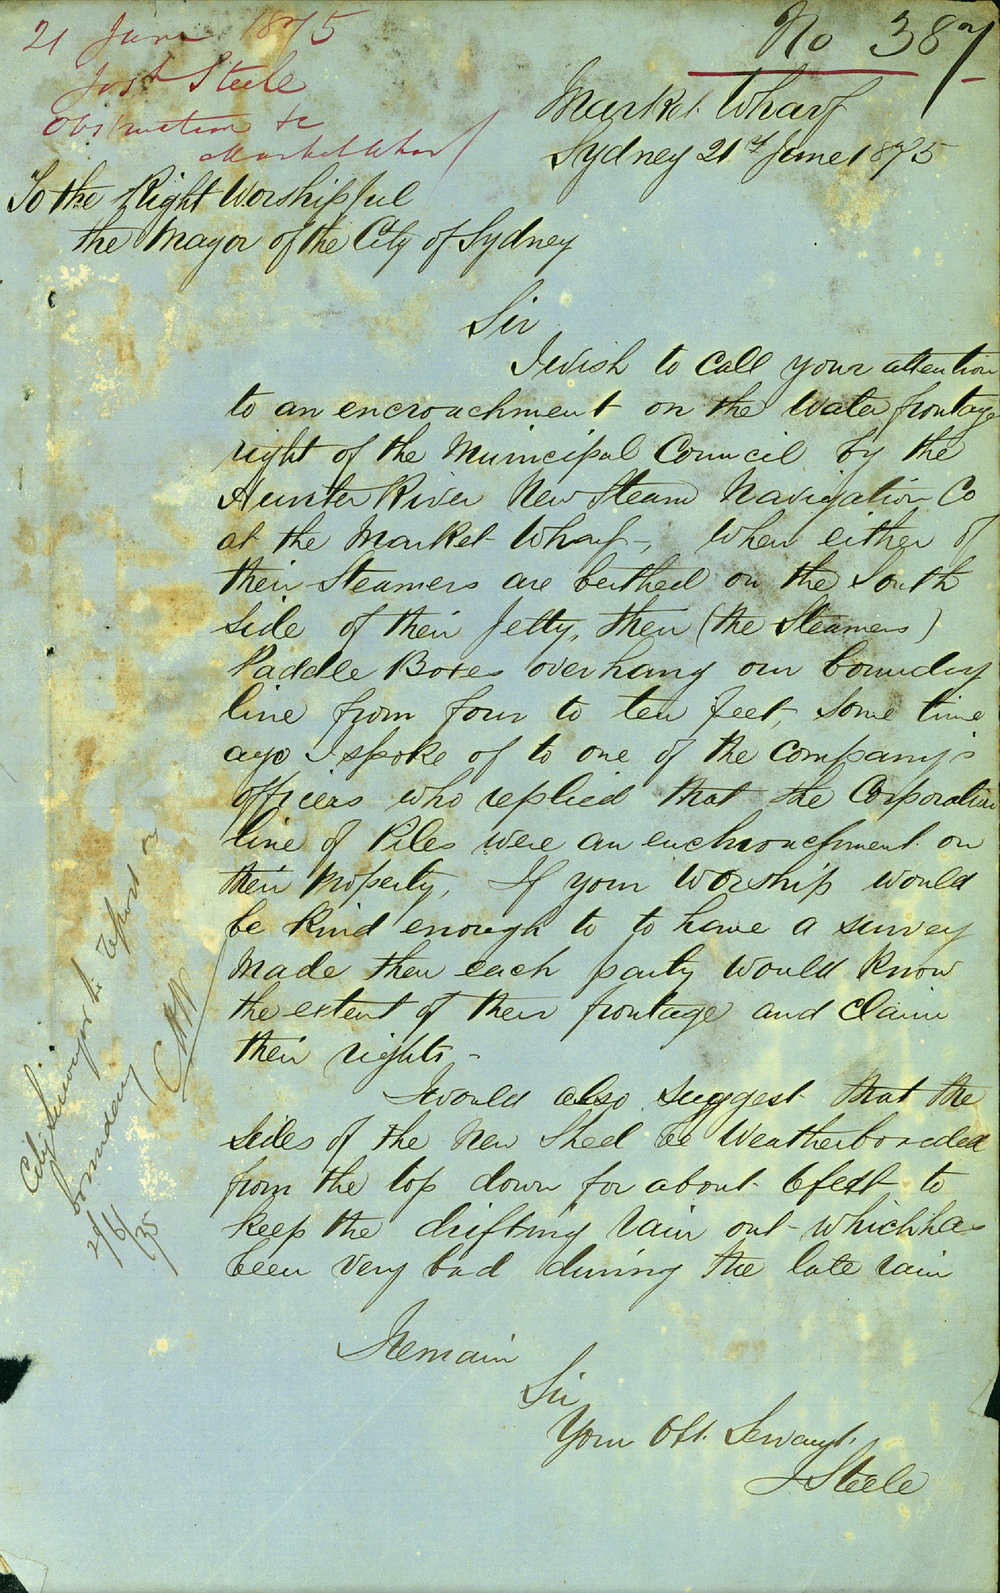 21 June 1875
Josh Steele
Obstruction &c
Market Wharf
No 387
Market Wharf
Sydney 21st June 1875
To the Right Worshipful
the Mayor of the City of Sydney
Sir
I wish to call your attention
to an encroachment on the Water frontage
right of the Municipal Council by the
Hunter River New Steam Navigation Co
at the Market Wharf -, When either of
their Steamers are berthed on the South
Side of their Jetty, then (the Steamers)
Paddle Boxes overhang our boundary
line from four to ten feet, Some time
ago I spoke of to one of the Company's
officers who replied that the Corporation
line of Piles were an enchroachment on
their Property, If your Worship would
be kind enough to to have a survey
Made then each party would Know
the extent of their frontage and Claim
their rights -
I would also suggest that the
Sides of the New Shed be Weatherboarded
from the top down for about 6 feet to
keep the drifting rain out - which has
been very bad during the late rain
I remain
Sir
Your Obt. Servant.
J Steele
City Surveyor to report on
boundary